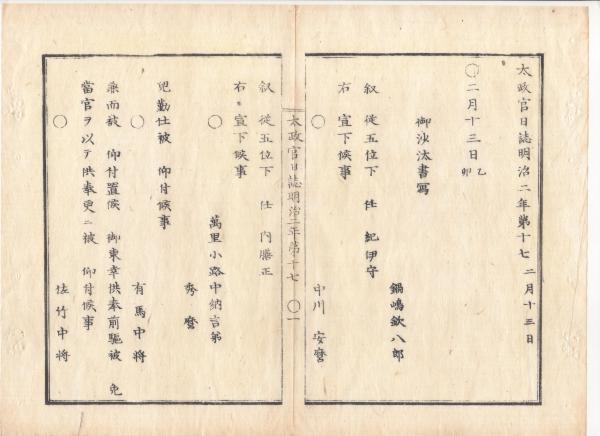 太政官日誌明治二年第十七 二月十三日
○二月十三日 乙卯
御沙汰書寫
鍋嶋欽八郎
叙 從五位下 任 紀伊守
右 宣下候事
○
中川 安麿
太政官日誌明治二年第十七 ○一
叙 從五位下 任 内膳正
右 宣下候事
○
萬里小路中納言弟
秀麿
兒勤仕被 仰付候事
○
有馬中將
兼而被 仰付置候 御東幸供奉前驅被 免
當官ヲ以テ供奉更ニ被 仰付候事
○
佐竹中將